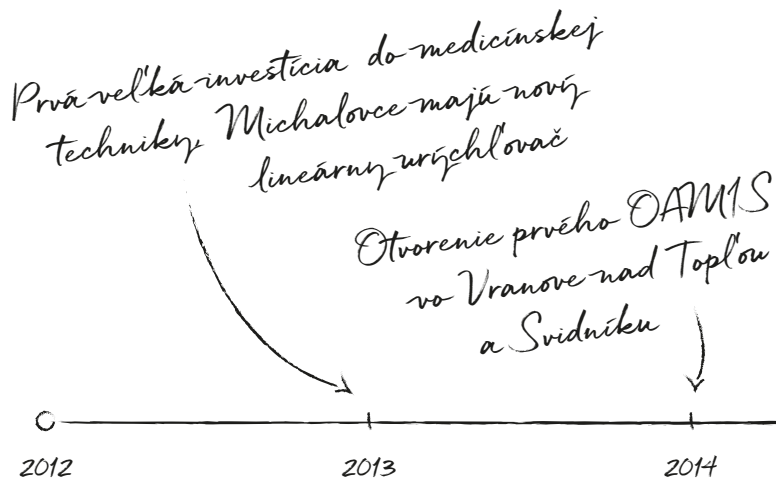 Prvá veľká investícia do medicínskej
techniky, Michalovce majú nový
lineárny urýchľovač
Otvorenie prvého OAMIS
vo Vranove nad Topľou
a Svidníku
2012 2013 2014